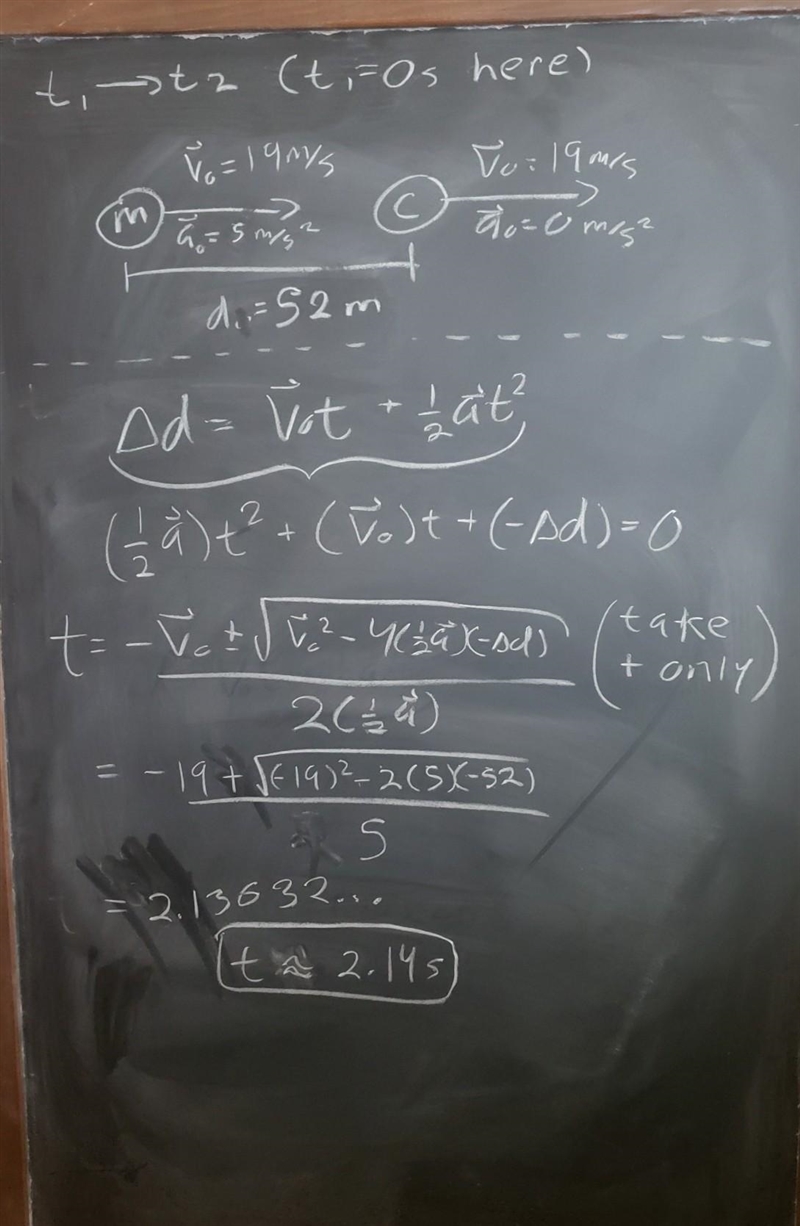 t₁ → t₂ (t₁=0s here)
v⃗₀=19m/s v⃗₀=19m/s
m c
a⃗₀=5m/s² a⃗₀=0m/s²
d₁=52m
Δd = v⃗₀t + ½a⃗t²
(½a⃗)t² + (v⃗₀)t + (-Δd) = 0
t = (-v⃗₀ ± √(v⃗₀² - 4(½a⃗)(-Δd))) / 2(½a⃗) (take + only)
= (-19 + √((-19)² - 2(5)(-52))) / 5
= 2.13632...
t ≈ 2.14s